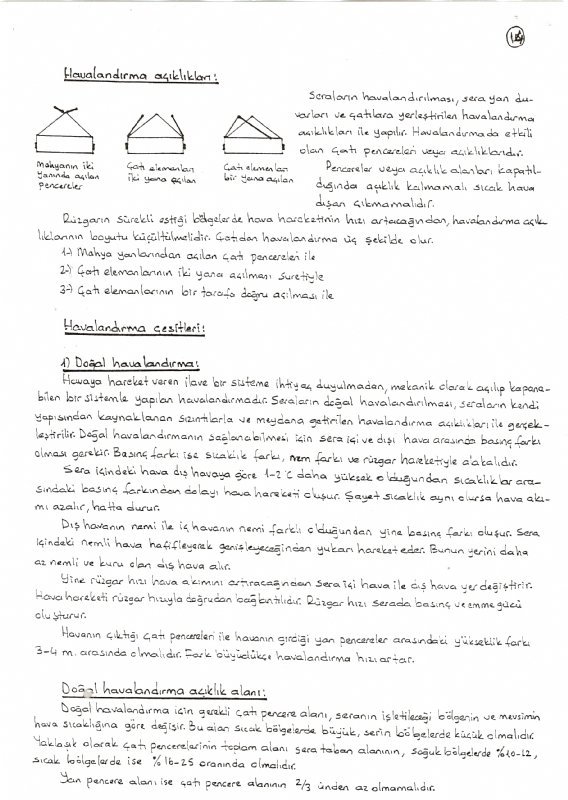 14
Havalandırma açıklıkları:
Seraların havalandırılması, sera yan du-
varları ve çatılara yerleştirilen havalandırma
açıklıkları ile yapılır. Havalandırmada etkili
olan çatı pencereleri veya açıklıklarıdır.
Pencereler veya açıklık alanları kapatıl-
dığında açıklık kalmamalı sıcak hava
dışarı çıkmamalıdır.
Mahyanın iki
yanında açılan
pencereler
Çatı elemanları
iki yana açılan
Çatı elemanları
bir yana açılan
Rüzgarın sürekli estiği bölgelerde hava hareketinin hızı artacağından, havalandırma açık-
lıklarının boyutu küçültülmelidir. Çatıdan havalandırma üç şekilde olur.
1-) Mahya yanlarından açılan çatı pencereleri ile
2-) Çatı elemanlarının iki yana açılması suretiyle
3-) Çatı elemanlarının bir tarafa doğru açılması ile
Havalandırma çeşitleri:
1) Doğal havalandırma:
Havaya hareket veren ilave bir sisteme ihtiyaç duyulmadan, mekanik olarak açılıp kapana-
bilen bir sistemle yapılan havalandırmadır. Seraların doğal havalandırılması, seraların kendi
yapısından kaynaklanan sızıntılarla ve meydana getirilen havalandırma açıklıkları ile gerçek-
leştirilir. Doğal havalandırmanın sağlanabilmesi için sera içi ve dışı hava arasında basınç farkı
olması gerekir. Basınç farkı ise sıcaklık farkı, nem farkı ve rüzgar hareketiyle alakalıdır.
Sera içindeki hava dış havaya göre 1-2°C daha yüksek olduğundan sıcaklıklar ara-
sındaki basınç farkından dolayı hava hareketi oluşur. Şayet sıcaklık aynı olursa hava akı-
mı azalır, hatta durur.
Dış havanın nemi ile iç havanın nemi farklı olduğundan yine basınç farkı oluşur. Sera
içindeki nemli hava hafifleyerek genişleyeceğinden yukarı hareket eder. Bunun yerini daha
az nemli ve kuru olan dış hava alır.
Yine rüzgar hızı hava akımını artıracağından sera içi hava ile dış hava yer değiştirir.
Hava hareketi rüzgar hızıyla doğrudan bağlantılıdır. Rüzgar hızı serada basınç ve emme gücü
oluşturur.
Havanın çıktığı çatı pencereleri ile havanın girdiği yan pencereler arasındaki yükseklik farkı
3-4 m. arasında olmalıdır. Fark büyüdükçe havalandırma hızı artar.
Doğal havalandırma açıklık alanı:
Doğal havalandırma için gerekli çatı pencere alanı, seranın işletileceği bölgenin ve mevsimin
hava sıcaklığına göre değişir. Bu alan sıcak bölgelerde büyük, serin bölgelerde küçük olmalıdır.
Yaklaşık olarak çatı pencerelerinin toplam alanı sera taban alanının, soğuk bölgelerde %10-12,
sıcak bölgelerde ise %16-25 oranında olmalıdır.
Yan pencere alanı ise çatı pencere alanının 2/3 ünden az olmamalıdır.